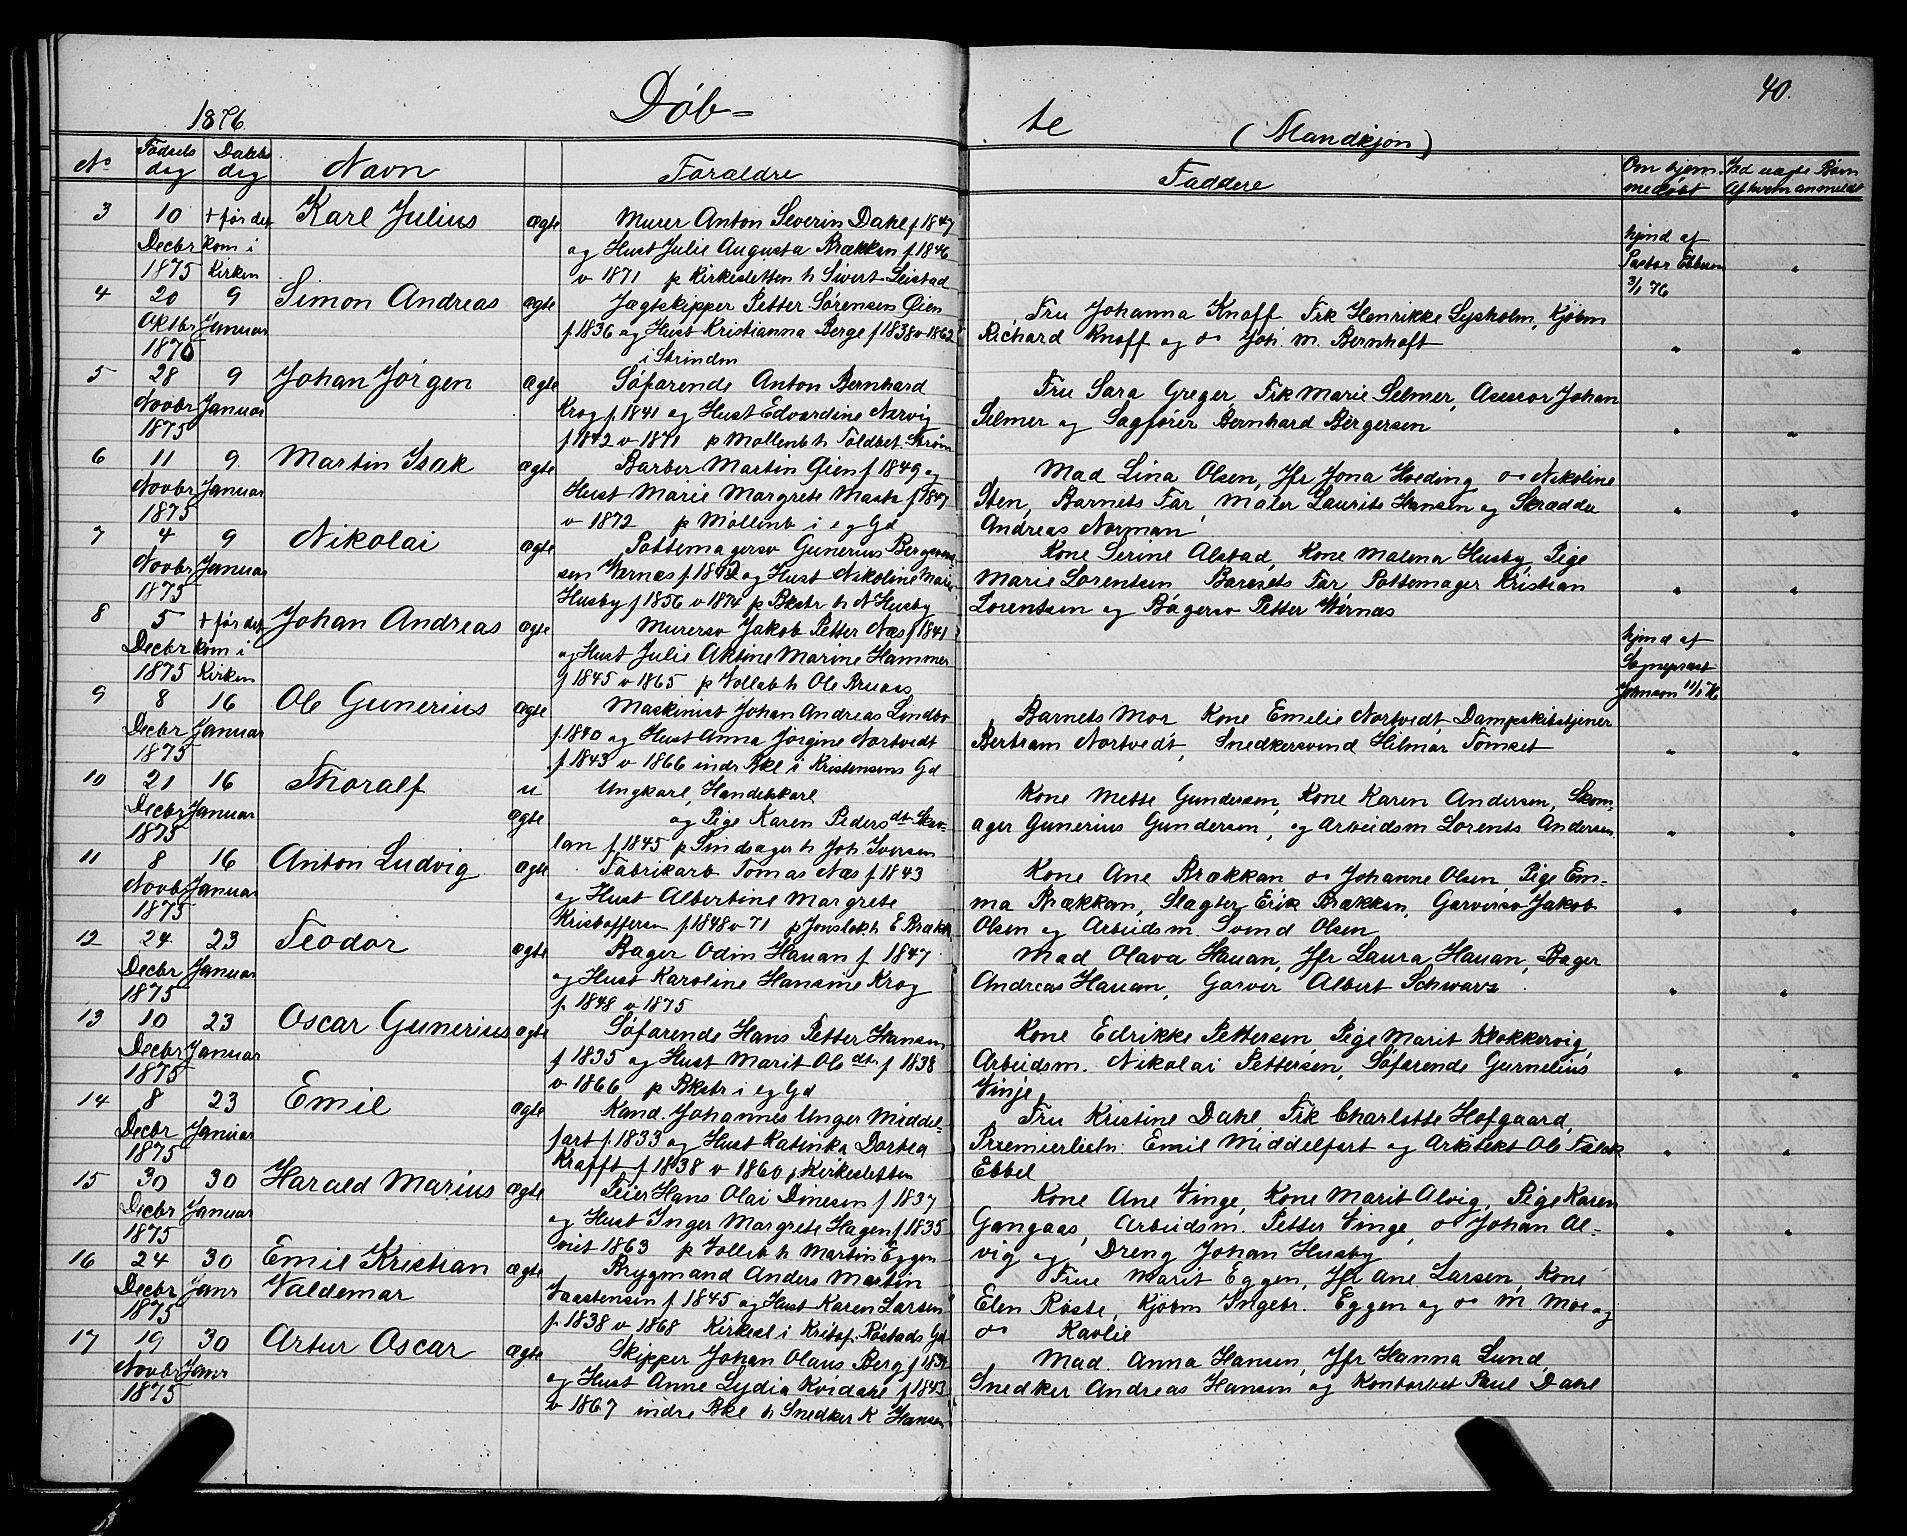 40.
1876. Døb= te (Mandkjøn)
No Fødsels dag Daabs dag Navn Forældre Faddere Om hjem medøbt Ved uægte Børn Af hvem anmeldt
3 10 + før det Karl Julius ægte Murer Anton Severin Dahl f 1847
Decbr kom i og Hust Julie Augusta Brækkan f 1846 hjmd af
1875 Kirken v 1871 p Kirkesletten h Sivert Seistad Pastor Ebbesen "
3/1 76
4 20 9 Simon Andreas ægte Jægtskipper Petter Sørensen Øien Fru Johanna Knoff Frk Henrikke Lysholm, Kjøbm
Oktbr Januar f 1836 og Hust Kristianna Berge f 1838 v 1862 Richard Knoff og do Joh. M. Bernhoft " "
1870 i Strinden
5 28 9 Johan Jørgen ægte Søfarende Anton Bernhard Fru Sara Greger, Frk Marie Selmer, Asessor Johan
Novbr Januar Krog f. 1841 og Hust Edvardine Nervig Selmer og Sagfører Bernhard Bergersen " "
1875 f 1842 v 1871 p Møllenb h Toldbet. Strøm
6 11 9. Martin Isak ægte Barber Martin Øien f 1849 og Mad Lina Olsen, Jfr Jona Hveding do Nikoline
Novbr Januar Hust Marie Margrete Masta f 1847 Sten, Barnets Far, Maler Laurits Hansen og Skrædder " "
1875 v 1872 p Møllenb i eg Gd Andreas Norman
7 4 9 Nikolai ægte Pottemagersv Gunerius Kone Serine Alstad, Kone Malena Husby, Pige
Novbr Januar sen Wernæs f 1842 og Hust Nikoline Marie Marie Lorentsen Barnets Far Pottemager Kristian " "
1875 Husby f 1856 v 1874 p Bkstr h N Husby Lorentsen og Bagersv Petter Wernæs
8 5 + før det Johan Andreas ægte Murersv Jakob Petter Næs f 1841 hjmd af
Decbr kom i og Hust Julie Aktine Marine Hammer Sognepræst
1875 Kirken f 1845 v 1865 p Vollab h Ole Bruaas Johnson 11/1 76
9 8 16 Ole Gunerius ægte Maskinist Johan Andreas Lindbo Barnets Mor, Kone Emelie Nortvedt, Dampskibstjener
Decbr Januar f. 1840 og Hust Anna Jørgine Nortvedt Bertram Nortvedt, Snedkersvend Hilmar Tomset " "
1875 f 1843 v 1866 indr Bkl i Kristensens Gd
10 21 16 Thoralf u Ungkarl, Handelskarl Kone Mette Gundersen, Kone Karen Andersen, Skom-
Decbr Januar ægte og Pige Karen Pedersdt Skav- ager Gunerius Gundersen, og Arbeidsm Lorents Andersen. " "
1875 lan f 1845 p Sindsager h Joh. Iversen
11 8 16 Anton Ludvig ægte Fabrikarb Tomas Næs f 1843 Kone Ane Brækkan do Johanne Olsen, Pige Em-
Novbr Januar og Hust Albertine Margrete ma Brækkan, Slagter Erik Brækkan, Garversv Jakob " "
1875 Kristoffersen f. 1848 v 71 p Olsen og Arbeidsm. Svend Olsen
12 24 23 Teodor ægte Bager Odin Hauan f 1847 Mad Olava Hauan, Jfr Laura Hauan, Bager
Decbr Januar og Hust Karoline Hansine Krog Andreas Hauan, Garver Albert Schwarz " "
1875 f. 1848 v 1875
13 10 23 Oscar Gunerius ægte Søfarende Hans Petter Hansen Kone Edrikke Pettersen Pige Marit Klokkervig,
Decbr Januar f 1835 og Hust Marit Olsdtr f 1838 Arbeidsm. Nikolai Pettersen, Søfarende Gurnelius " "
1875 v 1866 p Bkstr i eg Gd Vinje
14 8 23 Emil ægte Kand. Johannes Unger Middel- Fru Kristine Dahl, Frk Charlotte Hofgaard,
Decbr Januar fart f. 1833 og Hust Katinka Dortea Premierlietn. Emil Middelfart og Arkitekt Ole Falck " "
1875 Krafft f 1838 v 1860 p Kirkesletten Ebbel
15 30 30 Harald Marius ægte Feier Hans Olai Dinesen f 1837 Kone Ane Vinge, Kone Marit Alvig, Pige Karen
Decbr Januar og Hust Inger Margrete Hagen f 1835 Gangaas, Arbeidsm. Petter Vinge, do Johan Al- " "
1875 viet 1863 p Vollab h Martin Eggen vig og Dreng Johan Husby
16 24 30 Emil Kristian ægte Brygmand Anders Martin Frue Marit Eggen, Jfr Ane Larsen, Kone
Decbr Janr Valdemar f 1845 og Hust Karen Larsen Elen Røste, Kjøbm Ingebr. Eggen og do M. Moe og
1875 f. 1838 v 1868 Kirkesl i Kristof. Røstads Gd do Kavlie
17 19 30 Artur Oscar ægte Skipper Johan Olaus Berg f 1834 Mad. Anna Hansen, Jfr Hanna Lund,
Novbr Janr og Hust Anne Lydia Kvidare f 1843 Snedker Andreas Hansen og Kontorbet Paul Dahl
1875 v 1867 indre Bkl h Snedker K Hansen